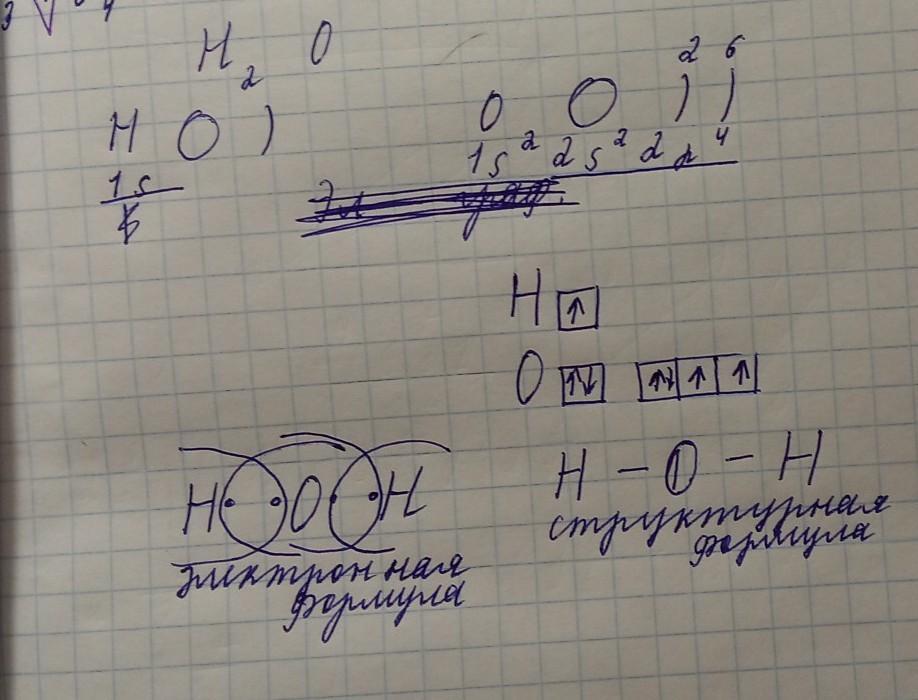 H₂O
H ) O ) ) 2 6
1s 1s² 2s² 2p⁴
H ↑
O ↑↓ ↑↓ ↑ ↑
H O H H - O - H
электронная формула
структурная формула